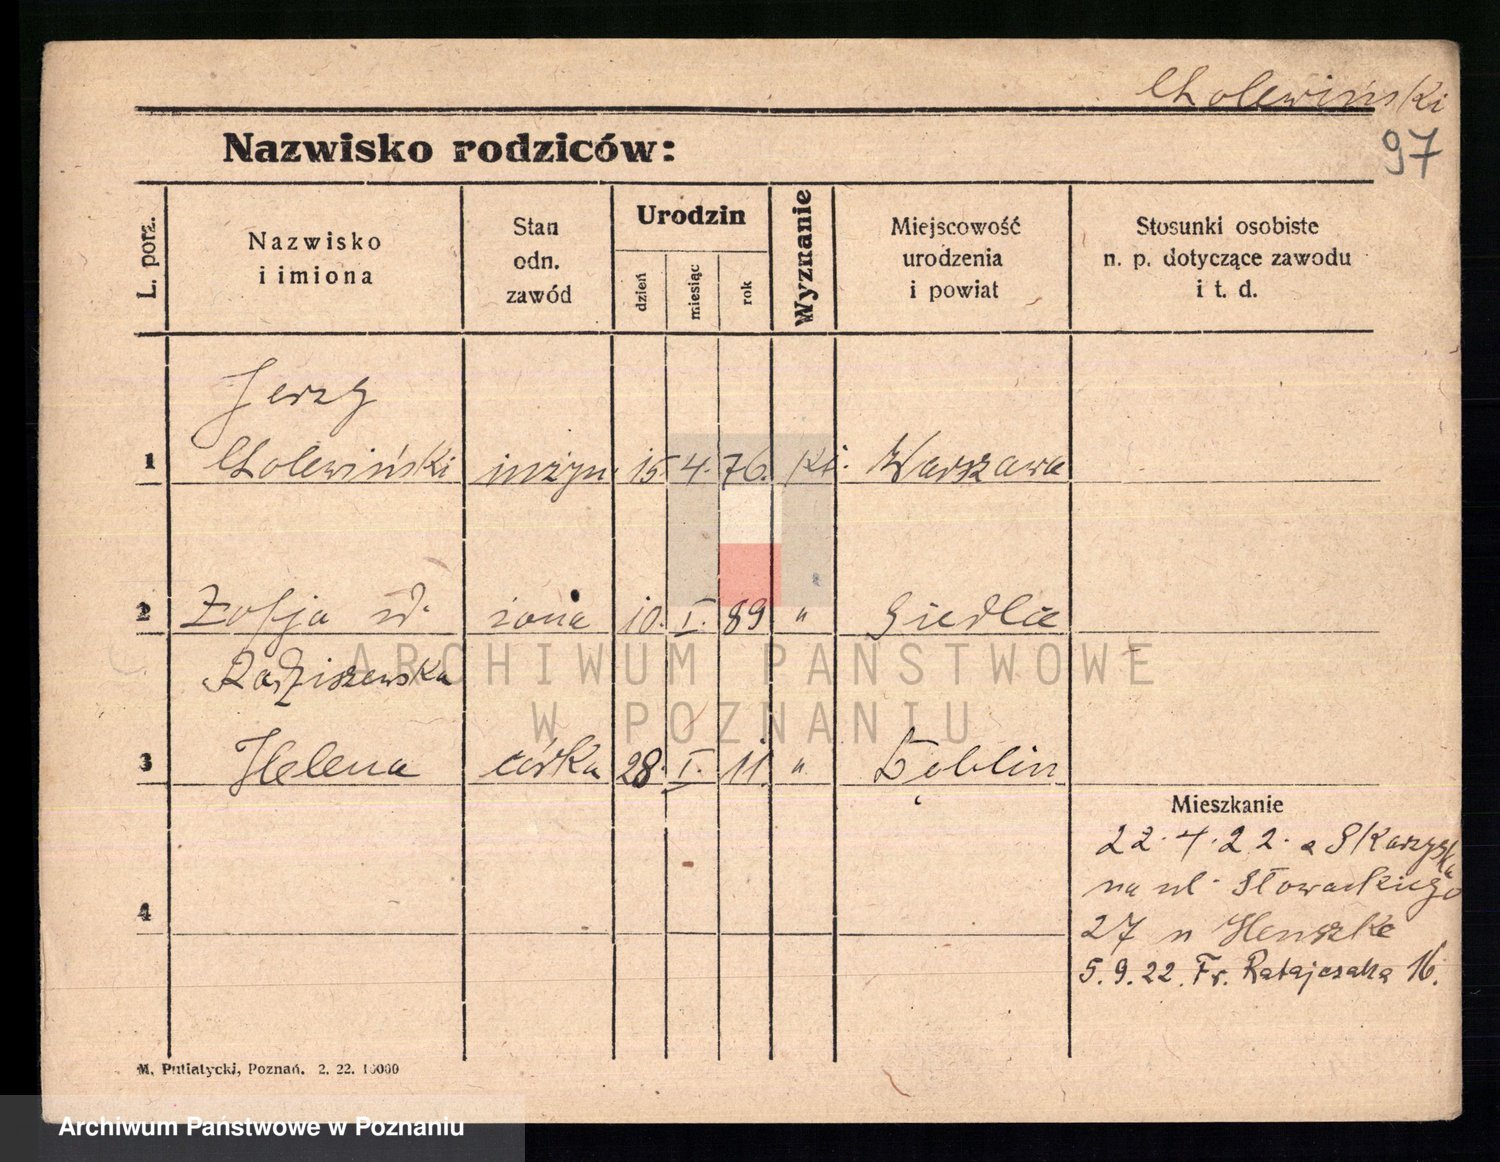 Cholewiński
97
Nazwisko rodziców:
L. porz.
Nazwisko
i imiona
Stan
odn.
zawód
Urodzin
dzień
miesiąc
rok
Wyznanie
Miejscowość
urodzenia
i powiat
Stosunki osobiste
n. p. dotyczące zawodu
i t. d.
Jerzy
1 Cholewiński inżyn. 15. 4. 76. kt. Warszawa
2 Zofja żona 10. I. 89 " Siedlce
Radziszewska
3 Helena córka 28. I. 11. " Dęblin
Mieszkanie
22.4.22. z Skarzyska
na ul. Słowackiego
27 u Henszke
5.9.22. Fr. Ratajczaka 16.
4
M. Putiatycki, Poznań. 2. 22. 10000
ARCHIWUM PAŃSTWOWE
W POZNANIU
Archiwum Państwowe w Poznaniu